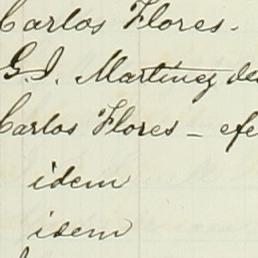 Carlos Flores.
G. I. Martínez de
Carlos Flores – efe
idem
idem